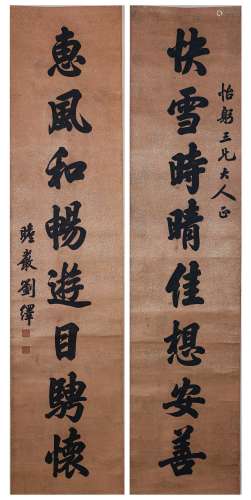 怡躬三兄大人正
快雪時晴佳想安善
惠風和暢遊目騁懷
瞻巖劉繹